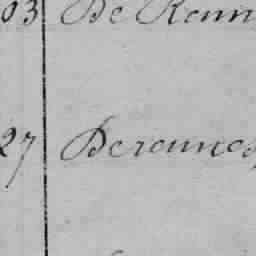 03 De Renn
27 Derennes